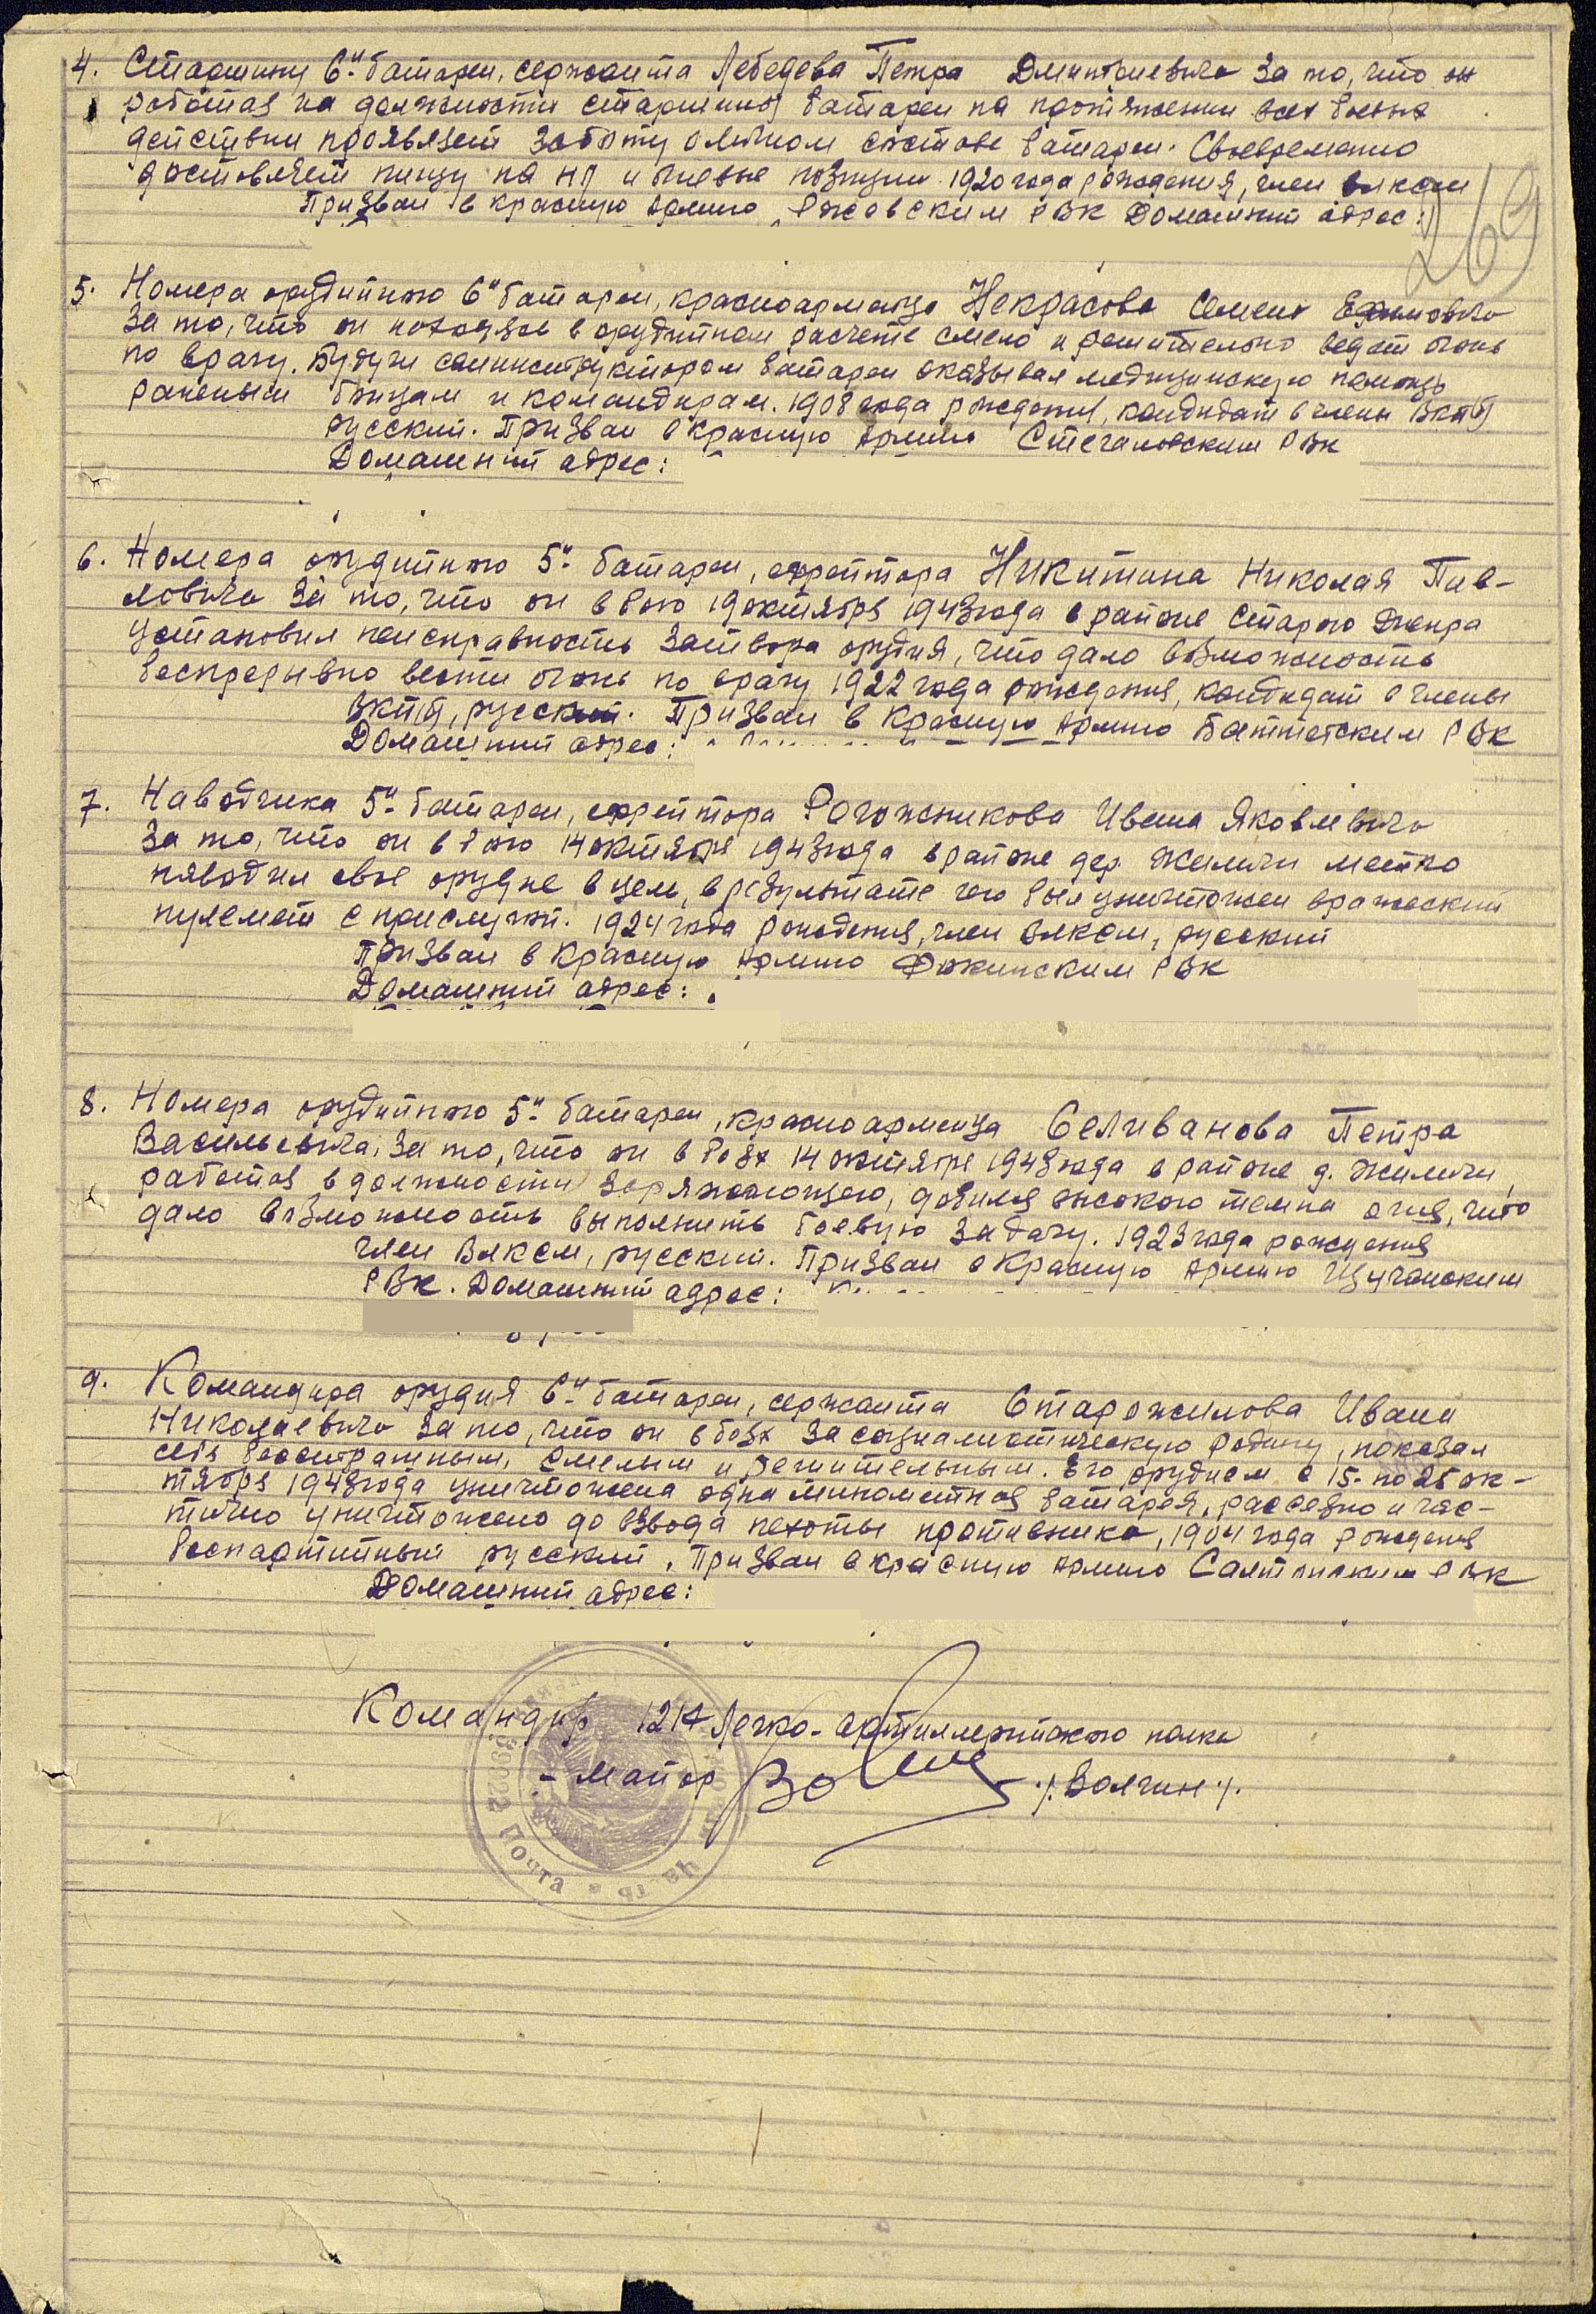 4. Старшину 6й батареи, сержанта Лебедева Петра Дмитриевича За то, что он
работая на должности старшины батареи на протяжении всех боевых
действий проявляет заботу о личном составе батареи. Своевременно
доставляет пищу на НП и огневые позиции. 1920 года рождения, член ВЛКСМ
Призван в красную Армию Ржевским РВК Домашний адрес:
269
5. Номера орудийного 6й батареи, красноармейца Некрасова Семена Ефимовича
За то, что он находясь в орудийном расчете смело и решительно ведет огонь
по врагу. Будучи санинструктором батареи оказывал медицинскую помощь
раненым бойцам и командирам. 1908 года рождения, кандидат в члены ВКП(б)
русский. Призван в Красную Армию РВК
Домашний адрес:
6. Номера орудийного 5й батареи, ефрейтора Никитина Николая Пав-
ловича За то, что он в бою 19 октября 1943 года в районе Старого Днепра
установил неисправность затвора орудия, что дало возможность
беспрерывно вести огонь по врагу 1922 года рождения, кандидат в члены
ВКП(б), русский. Призван в Красную Армию Батетским РВК
Домашний адрес:
7. Наводчика 5й батареи, ефрейтора Рогожникова Ивана Яковлевича
За то, что он в бою 14 октября 1943 года в районе дер. Жиличи метко
наводил свое орудие в цель, в результате чего был уничтожен вражеский
пулемет с прислугой. 1924 года рождения, член ВЛКСМ, русский
Призван в Красную Армию РВК
Домашний адрес:
8. Номера орудийного 5й батареи, красноармейца Селиванова Петра
Васильевича, За то, что он в боях 14 октября 1943 года в районе д. Жиличи,
работая в должности заряжающего, добился высокого темпа огня, что
дало возможность выполнить боевую задачу. 1923 года рождения
член ВЛКСМ, русский. Призван в Красную Армию Щучанским
РВК. Домашний адрес:
9. Командира орудия 6й батареи, сержанта Старожилова Ивана
Николаевича За то, что он в боях за социалистическую родину, показал
себя бесстрашным, смелым и решительным. Его орудием с 15. по 25 ок-
тября 1943 года уничтожена одна минометная батарея, рассеяно и час-
тично уничтожено до взвода пехоты противника, 1904 года рождения
беспартийный русский, Призван в красную Армию Салтонским РВК
Домашний адрес:
Командир 1214 Легко-артиллерийского полка
- майор ./. Волгин ./.
39022 Почта